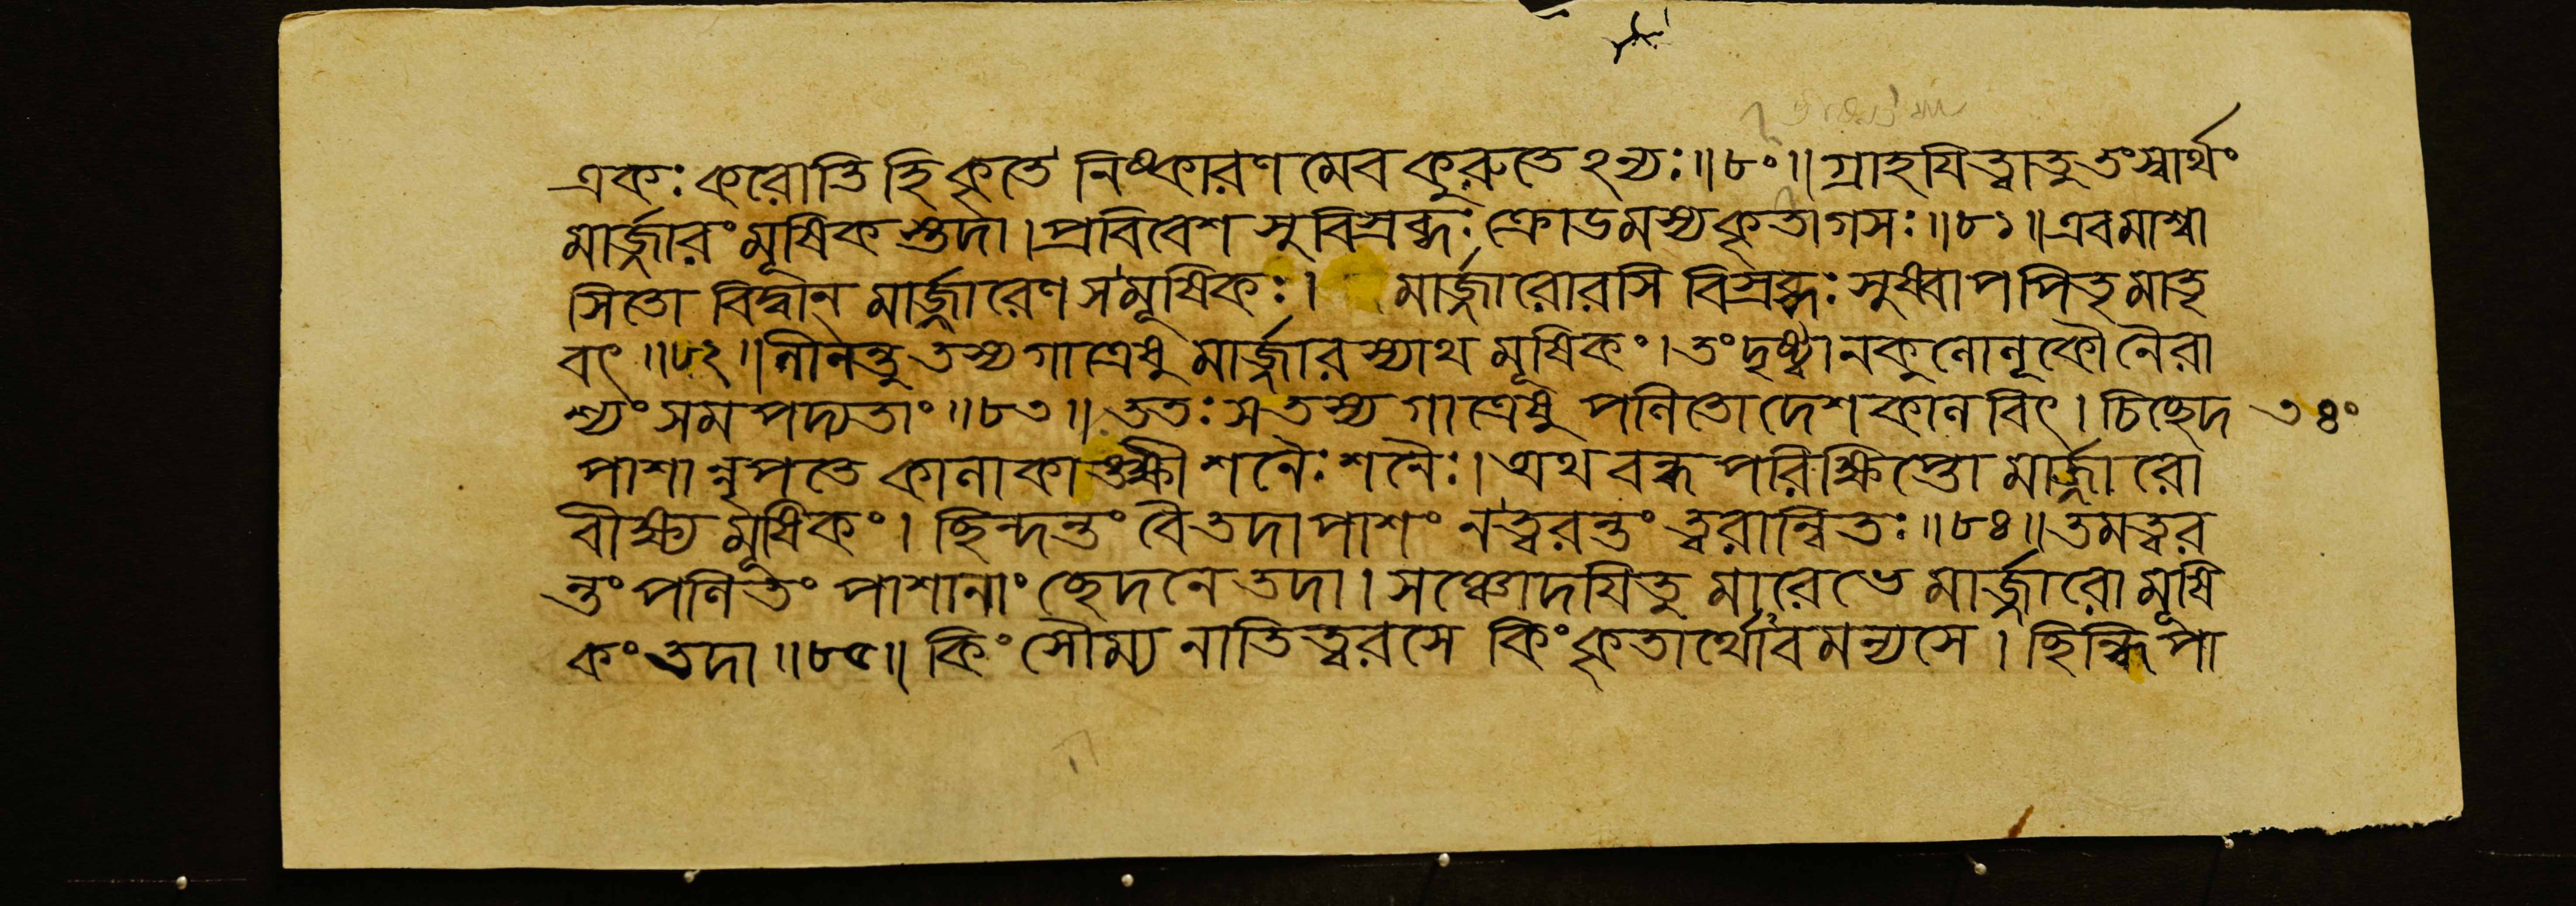 একঃ করোতি হি কৃতে নিষ্কারণমেব কুরুতেঽন্যঃ॥৮০॥ গ্রাহযিত্বা তু তং স্বার্থং
মার্জ্জারং মূষিকস্তদা। প্রবিবেশ সুবিস্রব্ধঃ ক্রোডমস্য কৃতাগসঃ॥৮১॥ এবমাশ্বা
সিতো বিদ্বান্ মার্জ্জারেণ স মূষিকঃ। মার্জ্জারোরসি বিস্রব্ধঃ সুষ্বাপ পিতৃমাতৃ
বৎ॥৮২॥ লীনন্তু তস্য গাত্রেষু মার্জ্জারস্যাথ মূষিকং। তং দৃষ্ট্বা নকুলোলূকৌ নৈরা
শ্যং সমপদ্যতাং॥৮৩॥ ততঃ স তস্য গাত্রেষু পলিতো দেশকালবিৎ। চিচ্ছেদ
৩৪০
পাশান্নৃপতে কালাকাঙ্ক্ষী শনৈঃ শনৈঃ। অথ বন্ধপরিক্ষিপ্তো মার্জ্জারো
বীক্ষ্য মূষিকং। ছিন্দন্তং বৈ তদা পাশং ন ত্বরন্তং ত্বরান্বিতঃ॥৮৪॥ তমত্বর
ন্তং পলিতং পাশানাং ছেদনে তদা। সঞ্চোদযিতুমারেভে মার্জ্জারো মূষি
কং তদা॥৮৫॥ কিং সৌম্য নাতিত্বরসে কিং কৃতার্থোবমন্যসে। ছিন্ধি পা